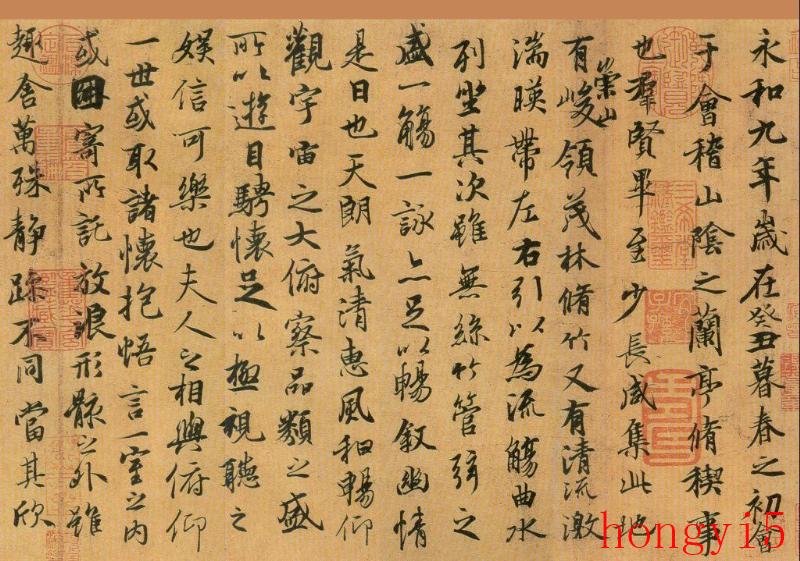 永和九年歲在癸丑暮春之初會
于會稽山陰之蘭亭脩稧事
也羣賢畢至少長咸集此地
有崇山峻領茂林脩竹又有清流激
湍暎帶左右引以為流觴曲水
列坐其次雖無絲竹管弦之
盛一觴一詠亦足以暢叙幽情
是日也天朗氣清惠風和暢仰
觀宇宙之大俯察品類之盛
所以遊目騁懷足以極視聽之
娛信可樂也夫人之相與俯仰
一世或取諸懷抱悟言一室之內
或因寄所託放浪形骸之外雖
趣舍萬殊靜躁不同當其欣
hongyi5